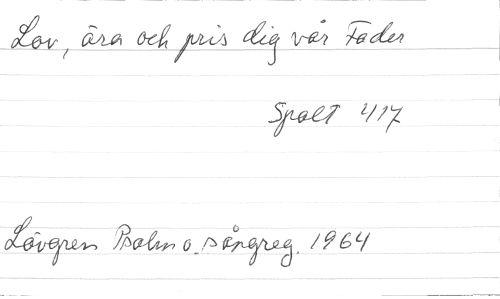 Lov, ära och pris dig vår Fader
Spalt 417
Lövgren Psalm o. sångreg. 1964